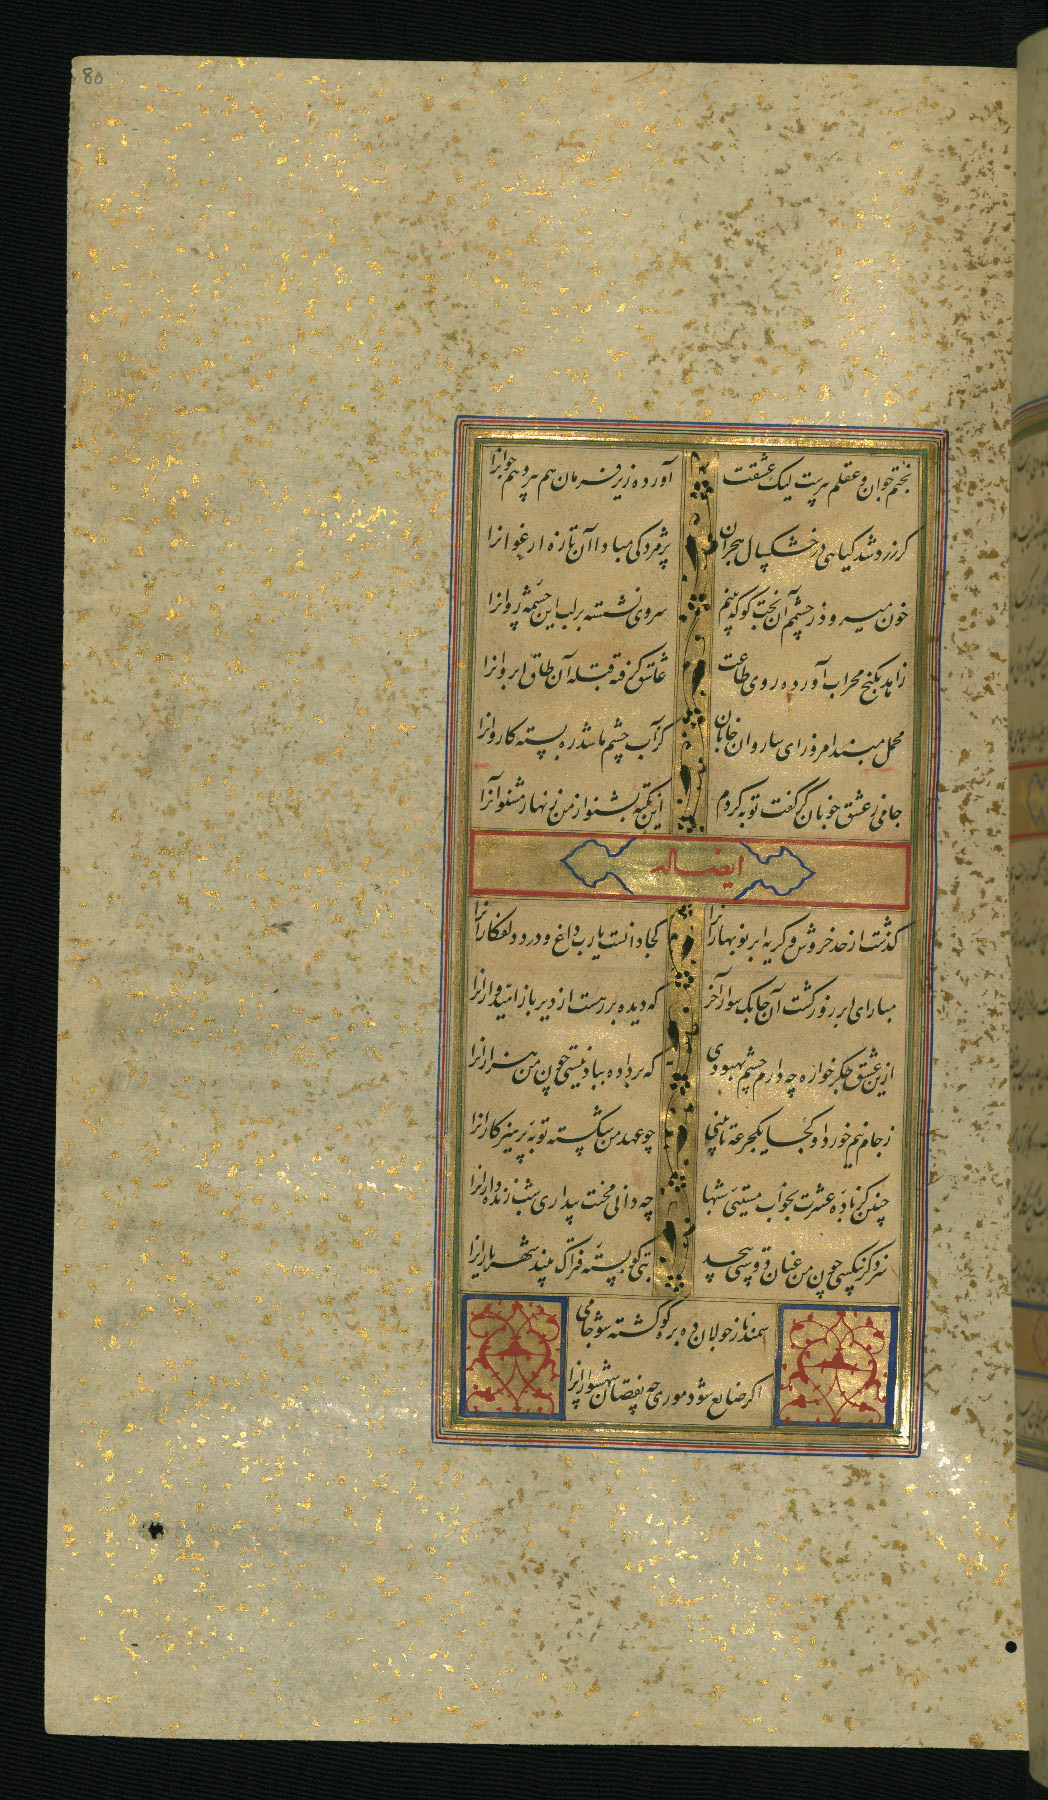 80
بختم جوان و عقلم پیرست لیک عشقت
آورده زیر فرمان هم پیر و هم جوانرا
گر زرد شد گیاهی در خشکسال هجران
پژمردگی مبادا آن تازه ارغوانرا
خون میرود ز چشمم آن بخت کو که بینم
سروی نشسته بر لب این چشمه روانرا
زاهد بکنج محراب آورده روی طاعت
عاشق گرفته قبله آن طاق ابروانرا
محمل مبند امروز ای ساروان جانان
کز آب چشم ما شد ره بسته کاروانرا
جامی ز عشق خوبان گر گفت توبه کردم
این نکته بشنو از من زنهار مشنو آنرا
ایضاله
گذشت از حد خروش و گریه ابر نوبهارانرا
کجا دانست یا رب داغ و درد دلفگارانرا
مبار ای ابر زور گشت آن چابک سوار آخر
که دیده بر رهست از دیر باز امیدوارانرا
ازین عشق جگرخواره چه دارم چشم بهبودی
که برداده بباد نیستی چون من هزارانرا
ز جام نیم خورد او کجا یکجرعه تا بینی
چو عهد من شکسته توبه پرهیزکارانرا
چنین کز باده عشرت بخواب مستیی شبها
چه دانی محنت بیداری شب زنده دارانرا
نزد کز بیکسی چون من عنان دوستی پیچد
بتی کو بسته فتراک بیند شهریارانرا
سمند ناز جولان ده بره گو کشته شو جامی
اگر ضایع شود موری چه نقصان شهسوارانرا